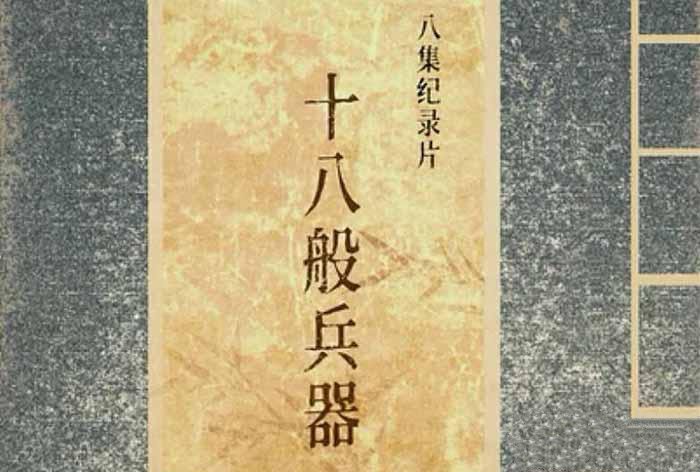 八集纪录片
十八般兵器